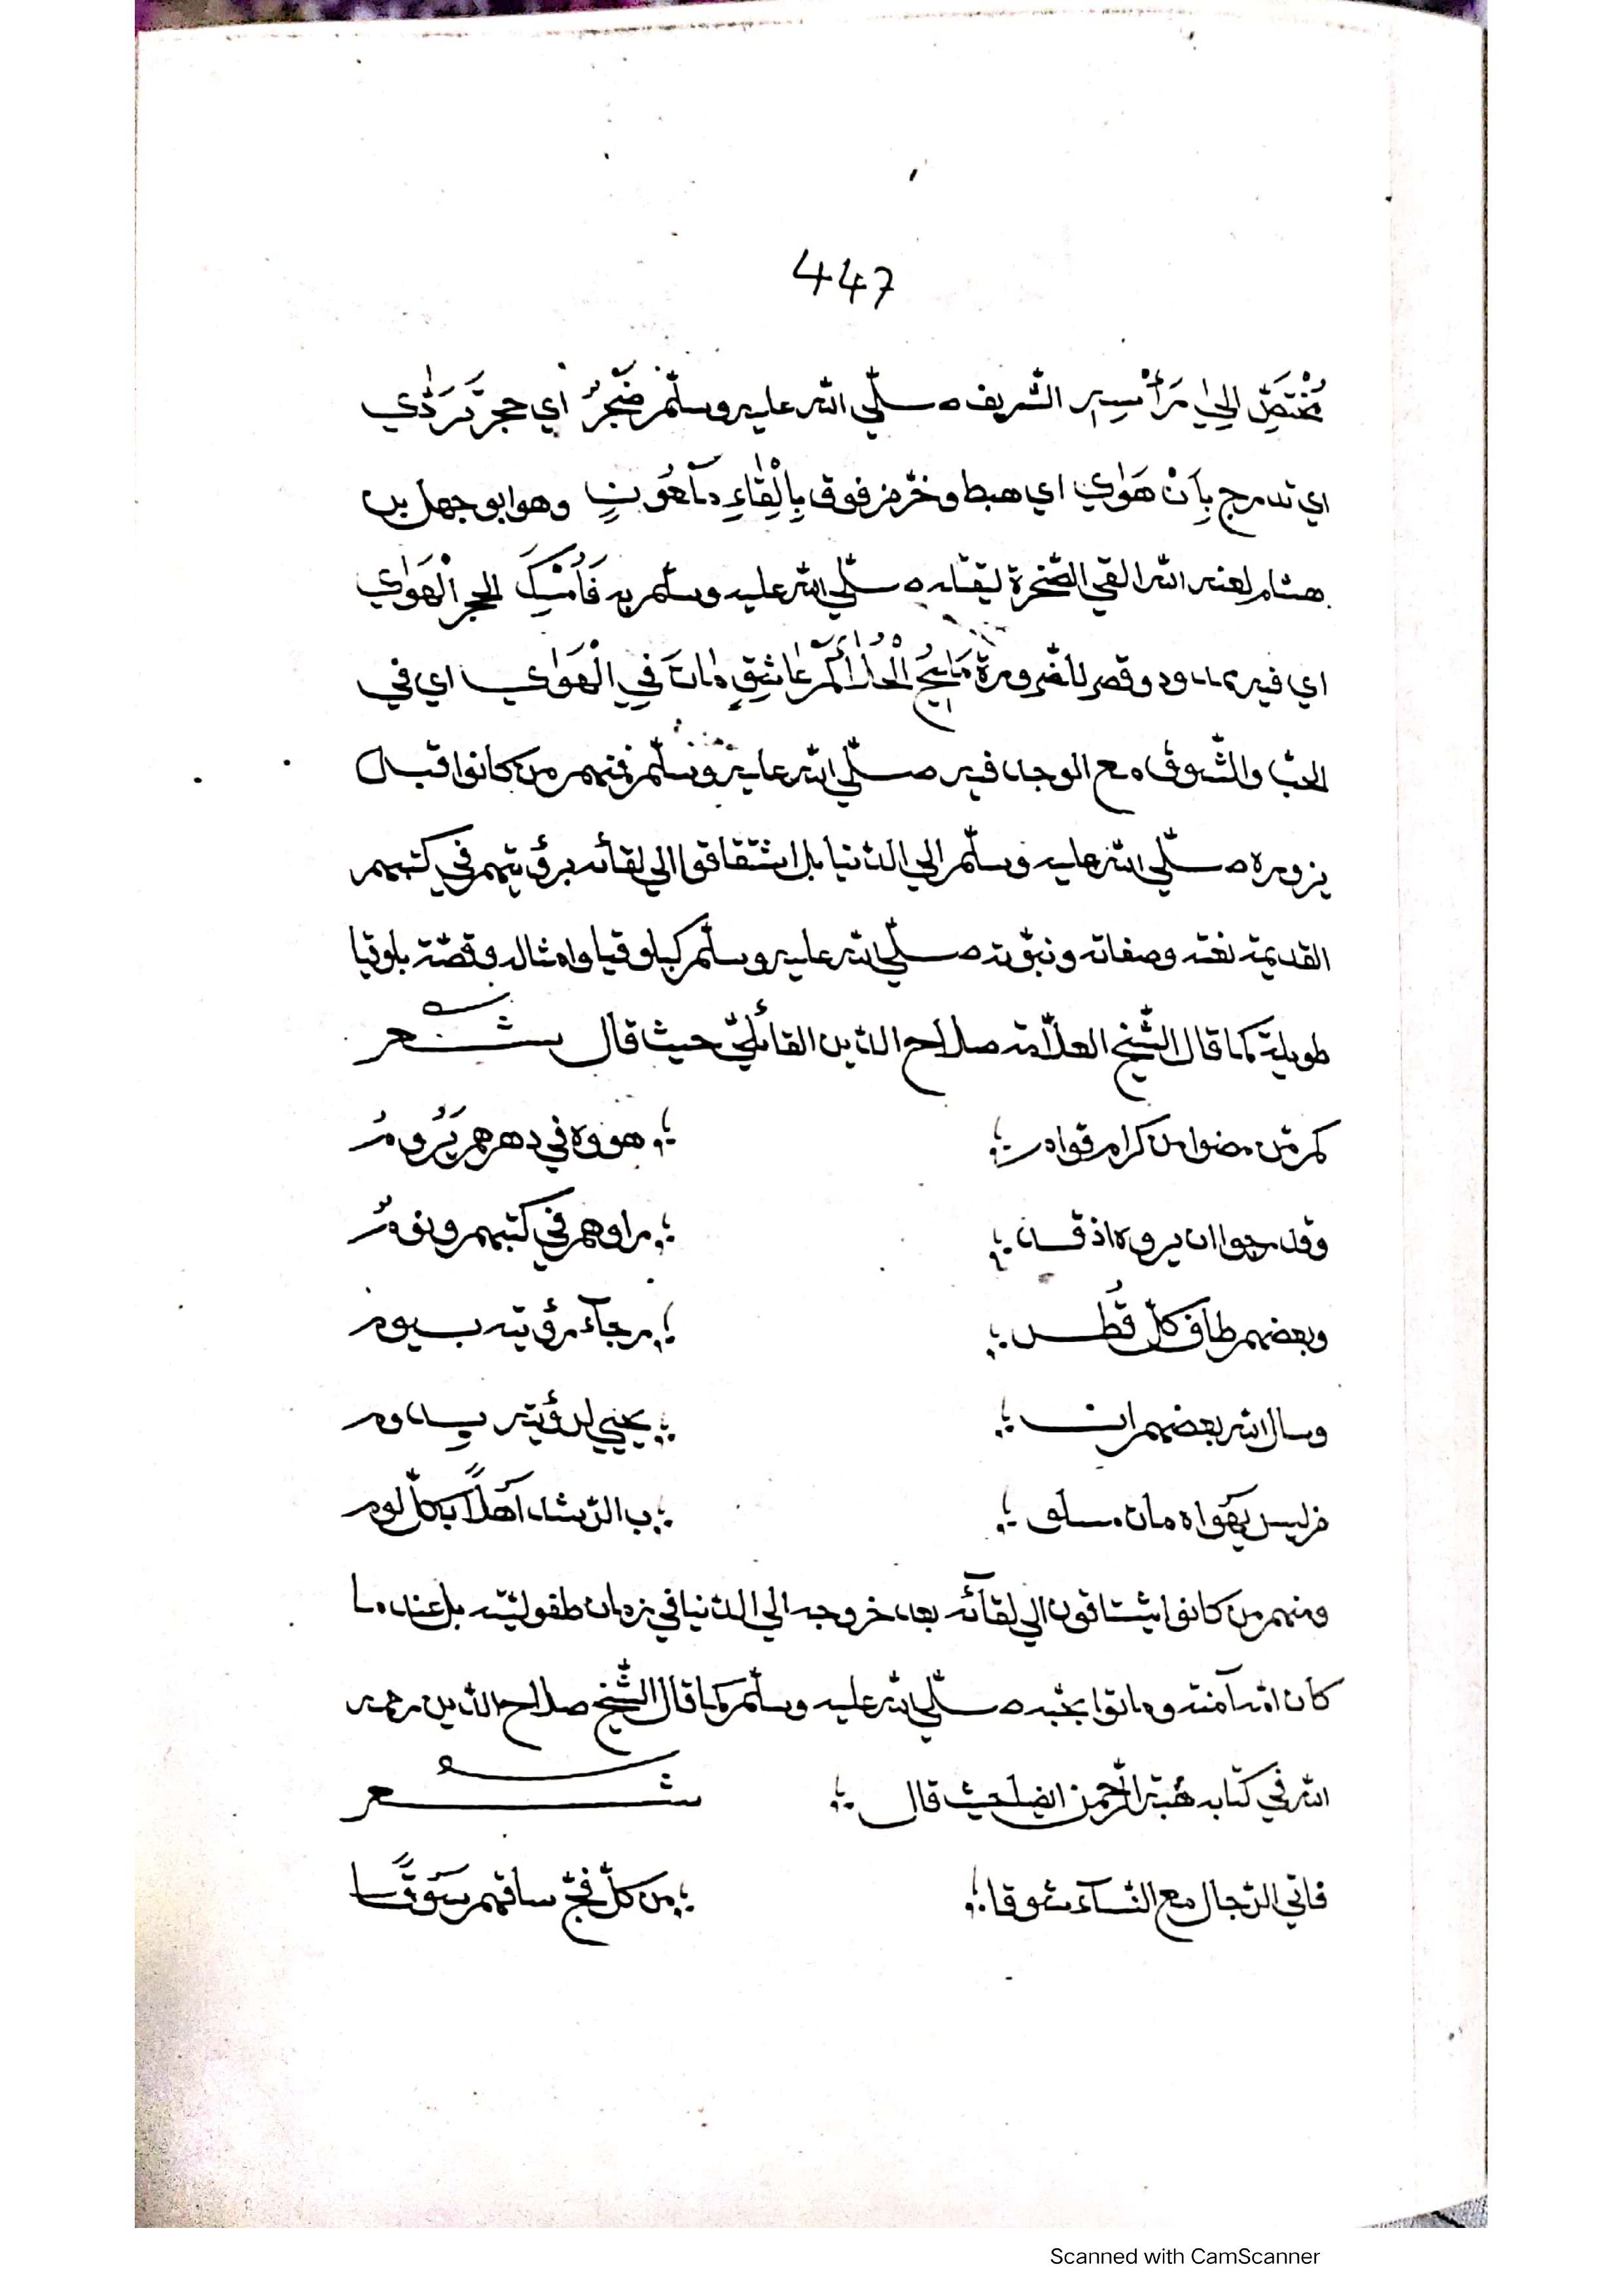 447
يُخْتَصِّ الِيٰ رَأْسِهِ الشّريف صلّي الله عليه وسلّم ضَجْرٌ اي حجر تَرَدّٰي
اي تدحرج بِاَنْ هَوٰي اي هبط وخرّ من فوق بِالْقٰاءِ مَلْعُونٍ وهو ابو جهل بن
هشام لعنه الله القي الصّخرة ليقتله صلّي الله عليه وسلّم به فَاُمْسِكَ الحجر الْهَوٰي
اي فيه ممدود وقصر للضّرورة مَلِيحُ الْحُلٰا كَمْ عٰاشِقٍ مٰاتَ فِي الْهَوٰي اي في
الحبّ والشّوق مع الوجد فيه صلّي الله عليه وسلّم فمنهم من كانوا قبل
بروره صلّي الله عليه وسلّم الي الدّنيا بل اشتقاقوا الي لقائه برؤيتهم في كتبهم
القديمة نعته وصفاته ونبوّته صلّي الله عليه وسلّم كبلوقيا وامثاله وقصّة بلوقيا
طويلة كما قال الشّيخ العلّامة صلاح الدّين القائليّ حيث قال شعر
كم من مضوا من كرام قوام هووه في دهرهم يَرُومُ
وقد رجوا ان يروه اذ قد راوهم في كتبهم ونومُ
وبعضهم طاف كلّ قُطر رجآء رؤيته بيوم
وسال الله بعضهم ان يحيي لرؤيته يدوم
من ليس يهواه مات مسلو ب الرّشد اَهْلًا بكلّ لوم
ومنهم من كانوا يشتاقون الي لقآئه بعد خروجه الي الدّنيا في زمان طفوليّته بل عند ما
كان امّه آمنة وماتوا بحبّه صلّي الله عليه وسلّم كما قال الشّيخ صلاح الدّين رحمه
الله في كتابه هُبة الرّحمن ايضا حيث قال شعر
فاتي الرّجال مع النّسآء شوقا من كلّ فجّ ساقهم سَوْقًا
Scanned with CamScanner